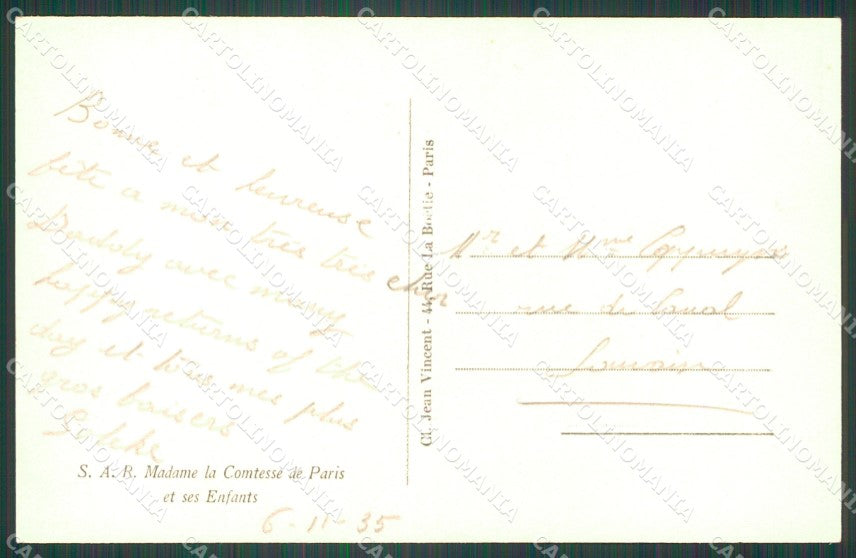 Bonne et heureuse
fête a mon très très cher
Daddy avec many
happy returns of the
day et tous mes plus
gros baisers
S. A. R. Madame la Comtesse de Paris
et ses Enfants
6-11-35
Cl. Jean Vincent - 44, Rue La Boetie - Paris
Mr et Mme
rue du Canal
Louvain
CARTOLINOMANIA